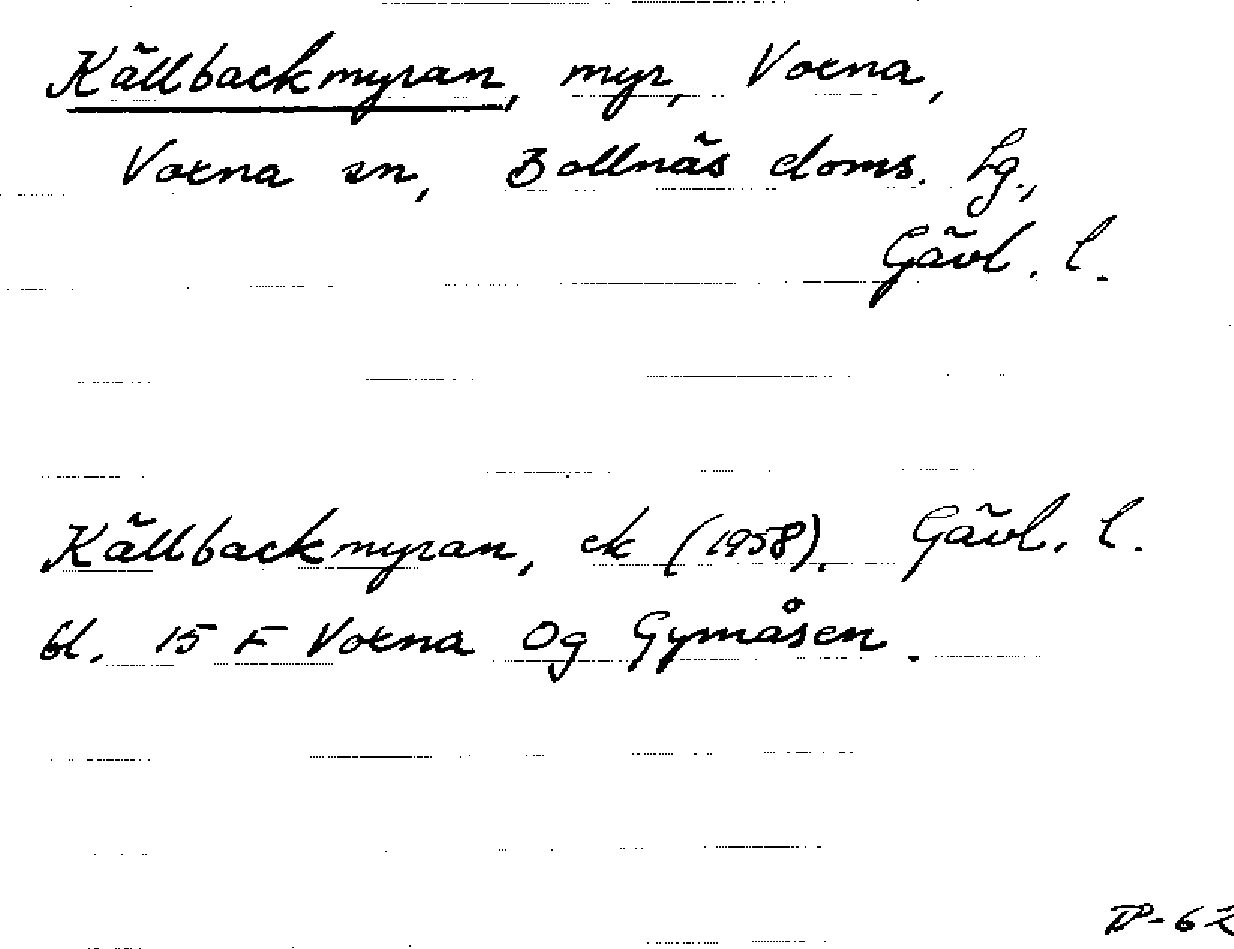 Källbackmyran, myr, Voxna,
Voxna sn, Bollnäs doms. hg.,
Gävl. l.
Källbackmyran, ek (1958). Gävl. l.
bl. 15 F Voxna 0g Gymåsen.
TP-62